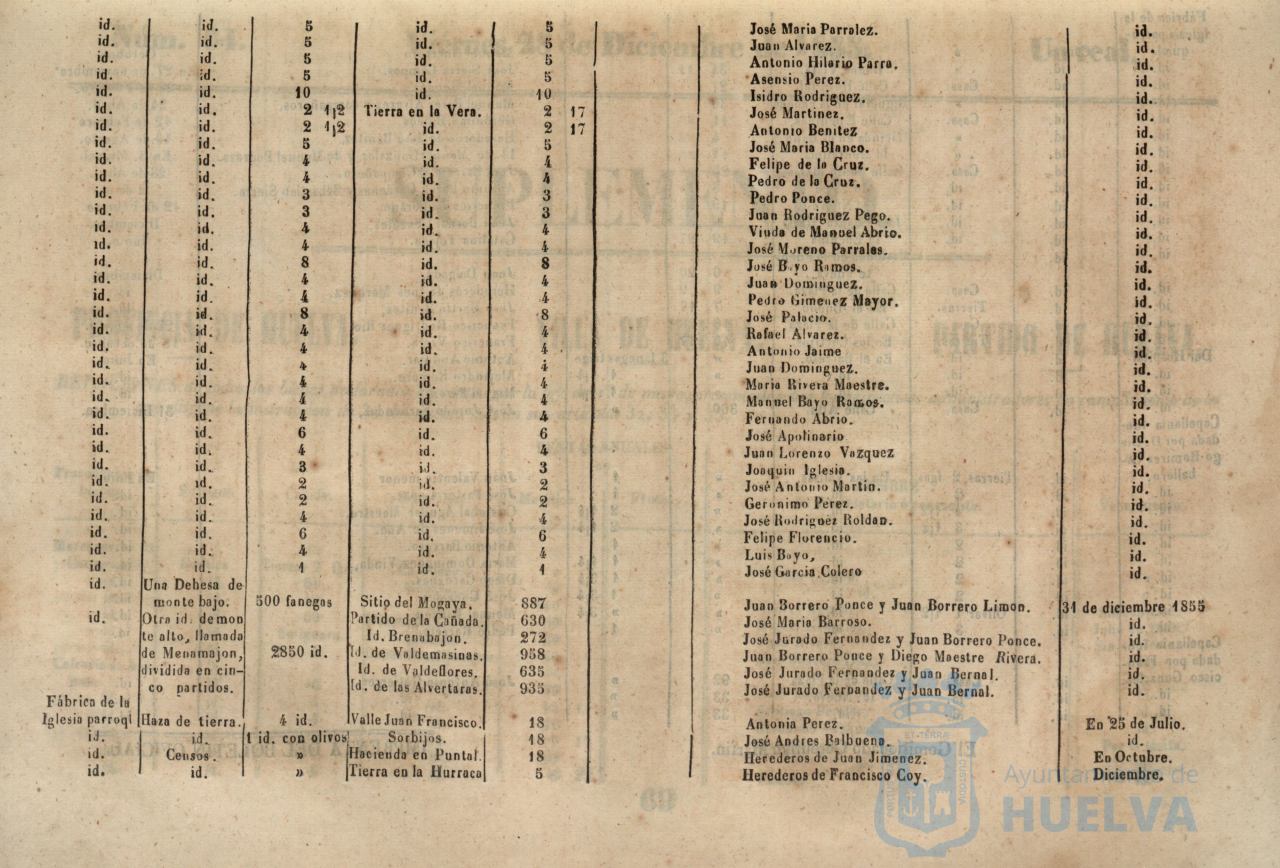 id. id. 5 id. 5 José Maria Parralez. id.
id. id. 5 id. 5 Juan Alvarez. id.
id. id. 5 id. 5 Antonio Hilario Parra. id.
id. id. 5 id. 5 Asensio Perez. id.
id. id. 10 id. 10 Isidro Rodriguez. id.
id. id. 2 1|2 Tierra en la Vera. 2 17 José Martinez. id.
id. id. 2 1|2 id. 2 17 Antonio Benitez id.
id. id. 5 id. 5 José Maria Blanco. id.
id. id. 4 id. 4 Felipe de la Cruz. id.
id. id. 4 id. 4 Pedro de la Cruz. id.
id. id. 3 id. 3 Pedro Ponce. id.
id. id. 3 id. 3 Juan Rodriguez Pego. id.
id. id. 4 id. 4 Viuda de Manuel Abrio. id.
id. id. 4 id. 4 José Moreno Parrales. id.
id. id. 8 id. 8 José Bayo Ramos. id.
id. id. 4 id. 4 Juan Dominguez. id.
id. id. 4 id. 4 Pedro Gimenez Mayor. id.
id. id. 8 id. 8 José Palacio. id.
id. id. 4 id. 4 Rafael Alvarez. id.
id. id. 4 id. 4 Antonio Jaime id.
id. id. 4 id. 4 Juan Dominguez. id.
id. id. 4 id. 4 Maria Rivera Maestre. id.
id. id. 4 id. 4 Manuel Bayo Ramos. id.
id. id. 4 id. 4 Fernando Abrio. id.
id. id. 6 id. 6 José Apolinario id.
id. id. 4 id. 4 Juan Lorenzo Vazquez id.
id. id. 3 id. 3 Joaquin Iglesia. id.
id. id. 2 id. 2 José Antonio Martin. id.
id. id. 2 id. 2 Geronimo Perez. id.
id. id. 4 id. 4 José Rodriguez Roldan. id.
id. id. 6 id. 6 Felipe Florencio. id.
id. id. 4 id. 4 Luis Bayo, id.
id. id. 1 id. 1 José Garcia Colero id.
id. Una Dehesa de
monte bajo. 500 fanegas Sitio del Mogaya. 887 Juan Borrero Ponce y Juan Borrero Limon. 31 de diciembre 1855
id. Otra id. de mon Partido de la Cañada. 630 José Maria Barroso. id.
te alto, llamada Id. Brenabajon. 272 José Jurado Fernandez y Juan Borrero Ponce. id.
de Menamajon, 2850 id. Id. de Valdemasinas. 958 Juan Borrero Ponce y Diego Maestre Rivera. id.
dividida en cin- Id. de Valdeflores. 635 José Jurado Fernandez y Juan Bernal. id.
co partidos. Id. de las Alvertaras. 935 José Jurado Fernandez y Juan Bernal. id.
Fábrica de la
Iglesia parroqi Haza de tierra. 4 id. Valle Juan Francisco. 18 Antonia Perez. En 25 de Julio.
id. id. 1 id. con olivos Sorbijos. 18 José Andres Balbuena. id.
id. Censos. » Hacienda en Puntal. 18 Herederos de Juan Jimenez. En Octubre.
id. id. » Tierra en la Hurraca 5 Herederos de Francisco Coy. Diciembre.
Ayuntamiento de
HUELVA